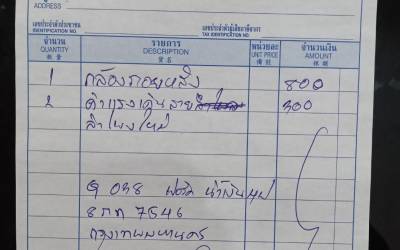 ที่อยู่
ADDRESS
เลขประจำตัวประชาชน
IDENTIFICATION NO.
เลขประจำตัวผู้เสียภาษีอากร
TAX IDENTIFICATION NO.
จำนวน รายการ หน่วยละ จำนวนเงิน
QUANTITY DESCRIPTION UNIT PRICE AMOUNT
1 กล้องถอยหลัง 800
2 ค่าแรงเดินสาย 300
ลำโพงใหม่
038
8กก 7546
กรุงเทพมหานคร